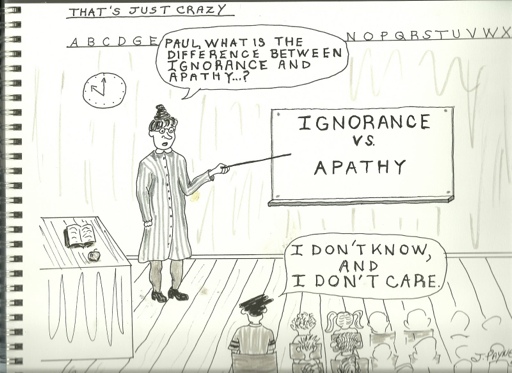 THAT'S JUST CRAZY
A B C D G E N O P Q R S T U V W X
PAUL, WHAT IS THE
DIFFERENCE BETWEEN
IGNORANCE AND
APATHY...?
IGNORANCE
VS.
APATHY
I DON'T KNOW,
AND
I DON'T CARE.
J. PAYNE